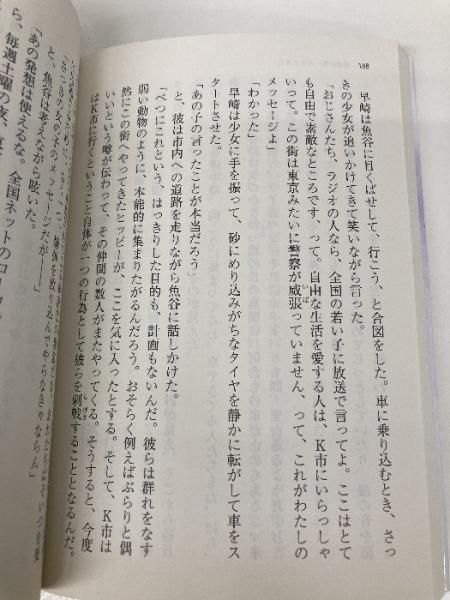 188
早崎は魚谷に目くばせして、行こう、と合図をした。車に乗り込むとき、さっ
きの少女が追いかけてきて笑いながら言った。
「おじさんたち、ラジオの人なら、全国の若い子に放送で言ってよ。ここはとて
も自由で素敵なところです、って。自由な生活を愛する人は、K市にいらっしゃ
いって。この街は東京みたいに警察が威張っていません、って、これがわたしの
メッセージよ」
「わかった」
早崎は少女に手を振って、砂にめり込みがちなタイヤを静かに転がして車をス
タートさせた。
「あの子の言ったことが本当だろう」
と、彼は市内への道路を走りながら魚谷に話しかけた。
「べつにこれという、はっきりした目的も、計画もないんだ。彼らは群れをなす
弱い動物のように、本能的に集まりたがるんだろう。おそらく例えばぶらりと偶
然にこの街へやってきたヒッピーが、ここを気に入ったとする。そして、K市は
いいという噂が伝わって、その仲間の数人がまたやってくる。そうすると、今度
はK市に行くということ自体が一つの行為として彼らを刺戟することとなるんだ。
を放り込んでやらなきゃならん」
のメッセージだが――」
と、魚谷は考えながら呟いた。
「あの発想は使えるな。全国ネットの
ら、毎週土曜の夜、